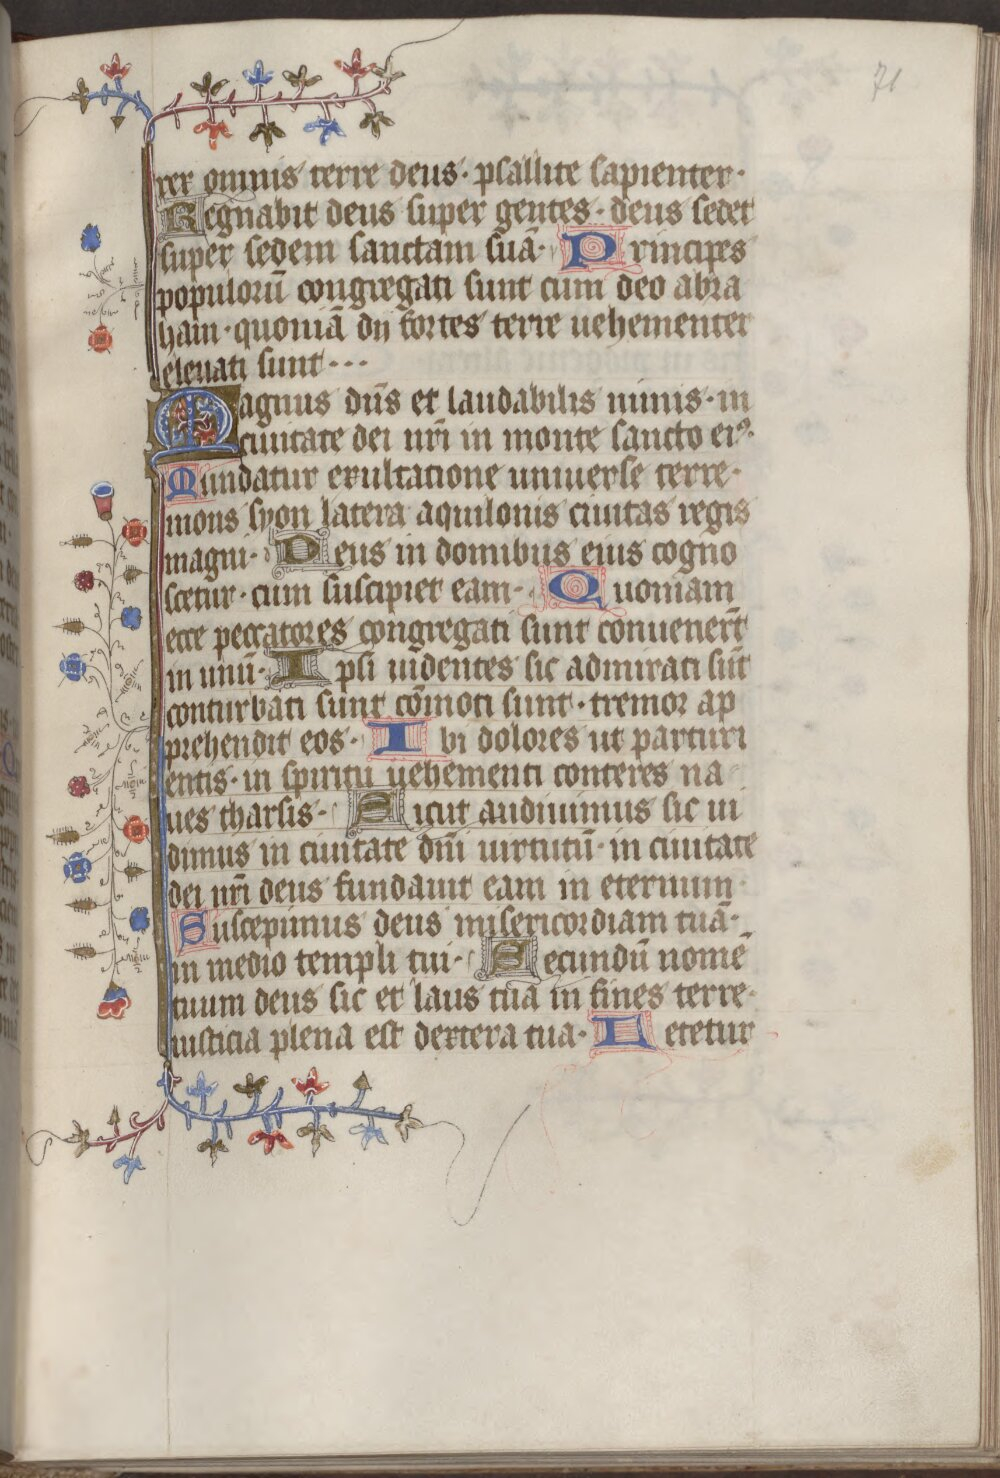 71
rex omnis terre deus · psallite sapienter ·
Regnabit deus super gentes · deus sedet
super sedem sanctam suā · Principes
populorū congregati sunt cum deo abra
ham · quoniā dij fortes terre uehementer
eleuati sunt · · ·
Magnus dn̄s et laudabilis nimis · in
ciuitate dei nr̄i in monte sancto eiꝰ ·
Fundatur exultatione uniuerse terre ·
mons syon latera aquilonis ciuitas regis
magni · Deus in domibus eius cogno
scetur · cum suscipiet eam · Quoniam
ecce peccatores congregati sunt conuenert̄
in unū · Ipsi uidentes sic admirati sūt
conturbati sunt cōmoti sunt · tremor ap
prehendit eos · Ibi dolores ut parturi
entis · in spiritu uehementi conteres na
ues tharsis · Sicut audiuimus sic ui
dimus in ciuitate dn̄i uirtutū · in ciuitate
dei nr̄i deus fundauit eam in eternum ·
Suscepimus deus misericordiam tuā ·
in medio templi tui · Secundū nomē
tuum deus sic et laus tua in fines terre ·
iusticia plena est dextera tua · Letetur